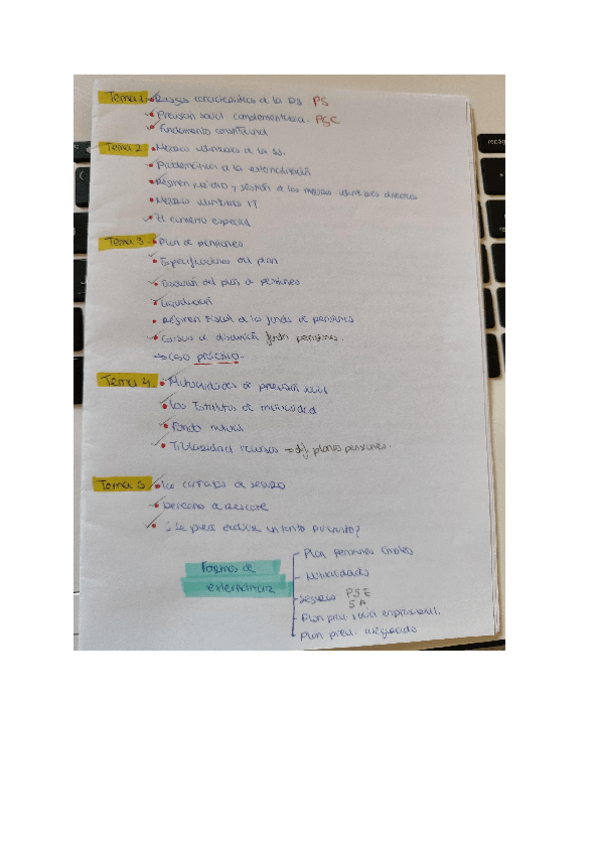 Tema 1 Rasgos característicos de la PS PS
Previsión social complementaria. PSC
Fundamento constitucional
Tema 2 Mejoras voluntarias de la SS.
Problemática de la externalización
Régimen jurídico y gestión de las mejoras voluntarias directas
Mejoras voluntarias IT
El convenio especial
Tema 3 Plan de pensiones
Especificaciones del plan
del plan de pensiones
Liquidación
Régimen fiscal de los fondos de pensiones
Causas de disolución fondo pensiones.
→ Caso práctico.
Tema 4 Mutualidades de previsión social
Los Estatutos de mutualidad
Fondo mutual
Titularidad recursos → dif planes pensiones.
Tema 5 Los contratos de seguro
Derecho de rescate
¿Se puede exteriorizar un tanto
Formas de
externalizar
Plan pensiones empleo
Mutualidades
Seguros PSE
SA
Plan prev. social empresarial.
Plan prev. asegurado